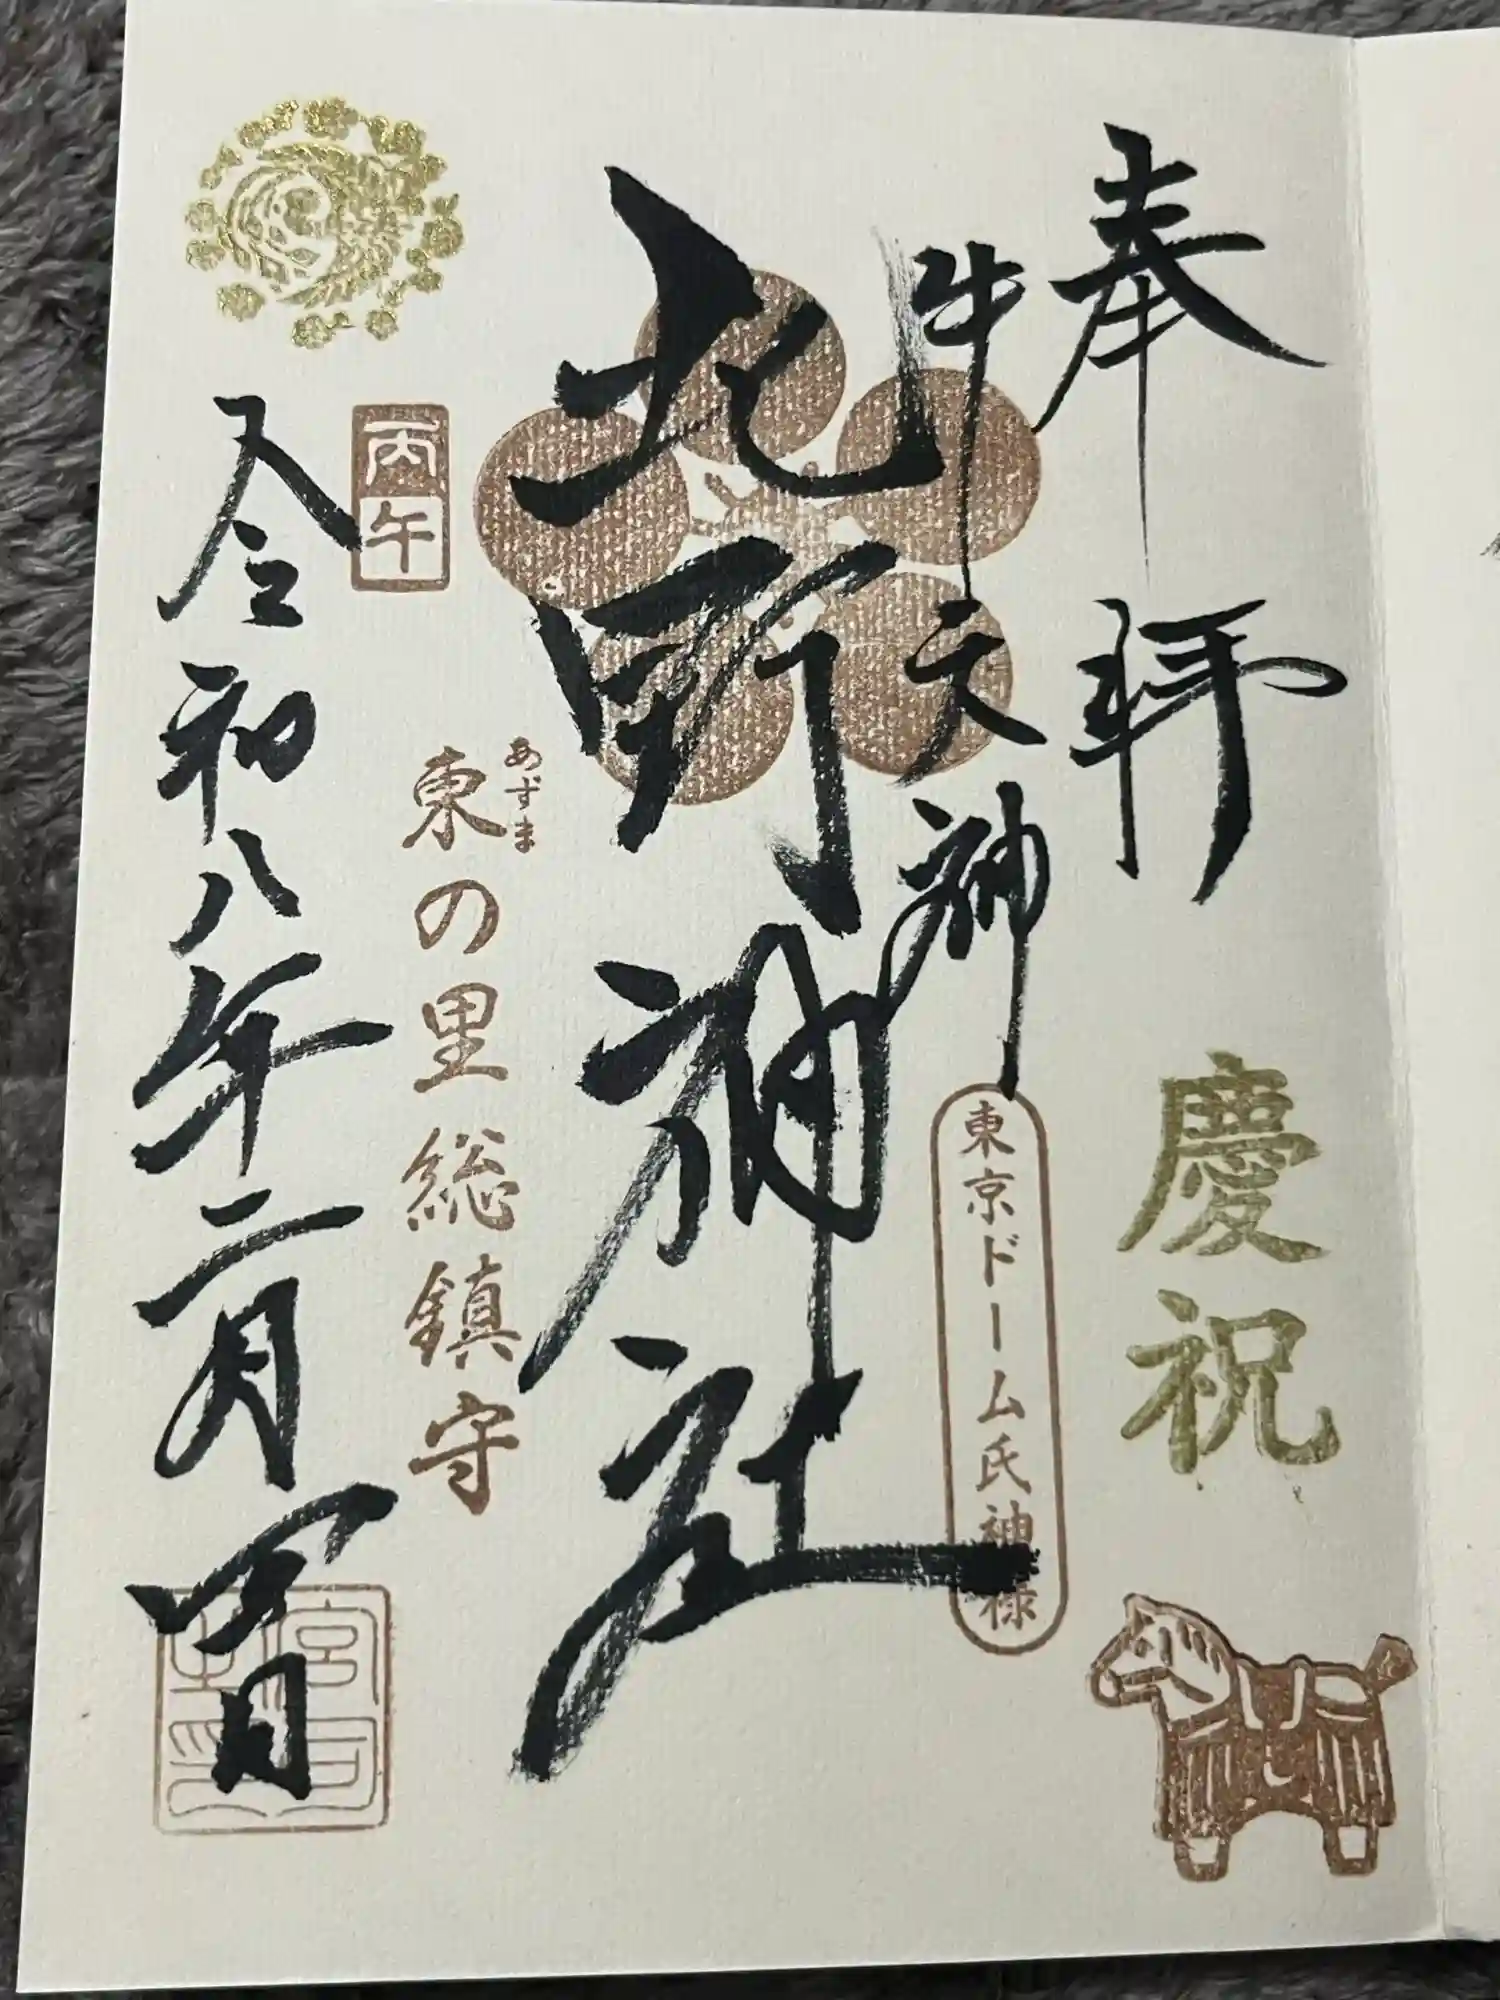 奉拝
慶祝
牛天神
東京ドーム氏神様
北野神社
あずま
東の里総鎮守
丙午
令和八年二月